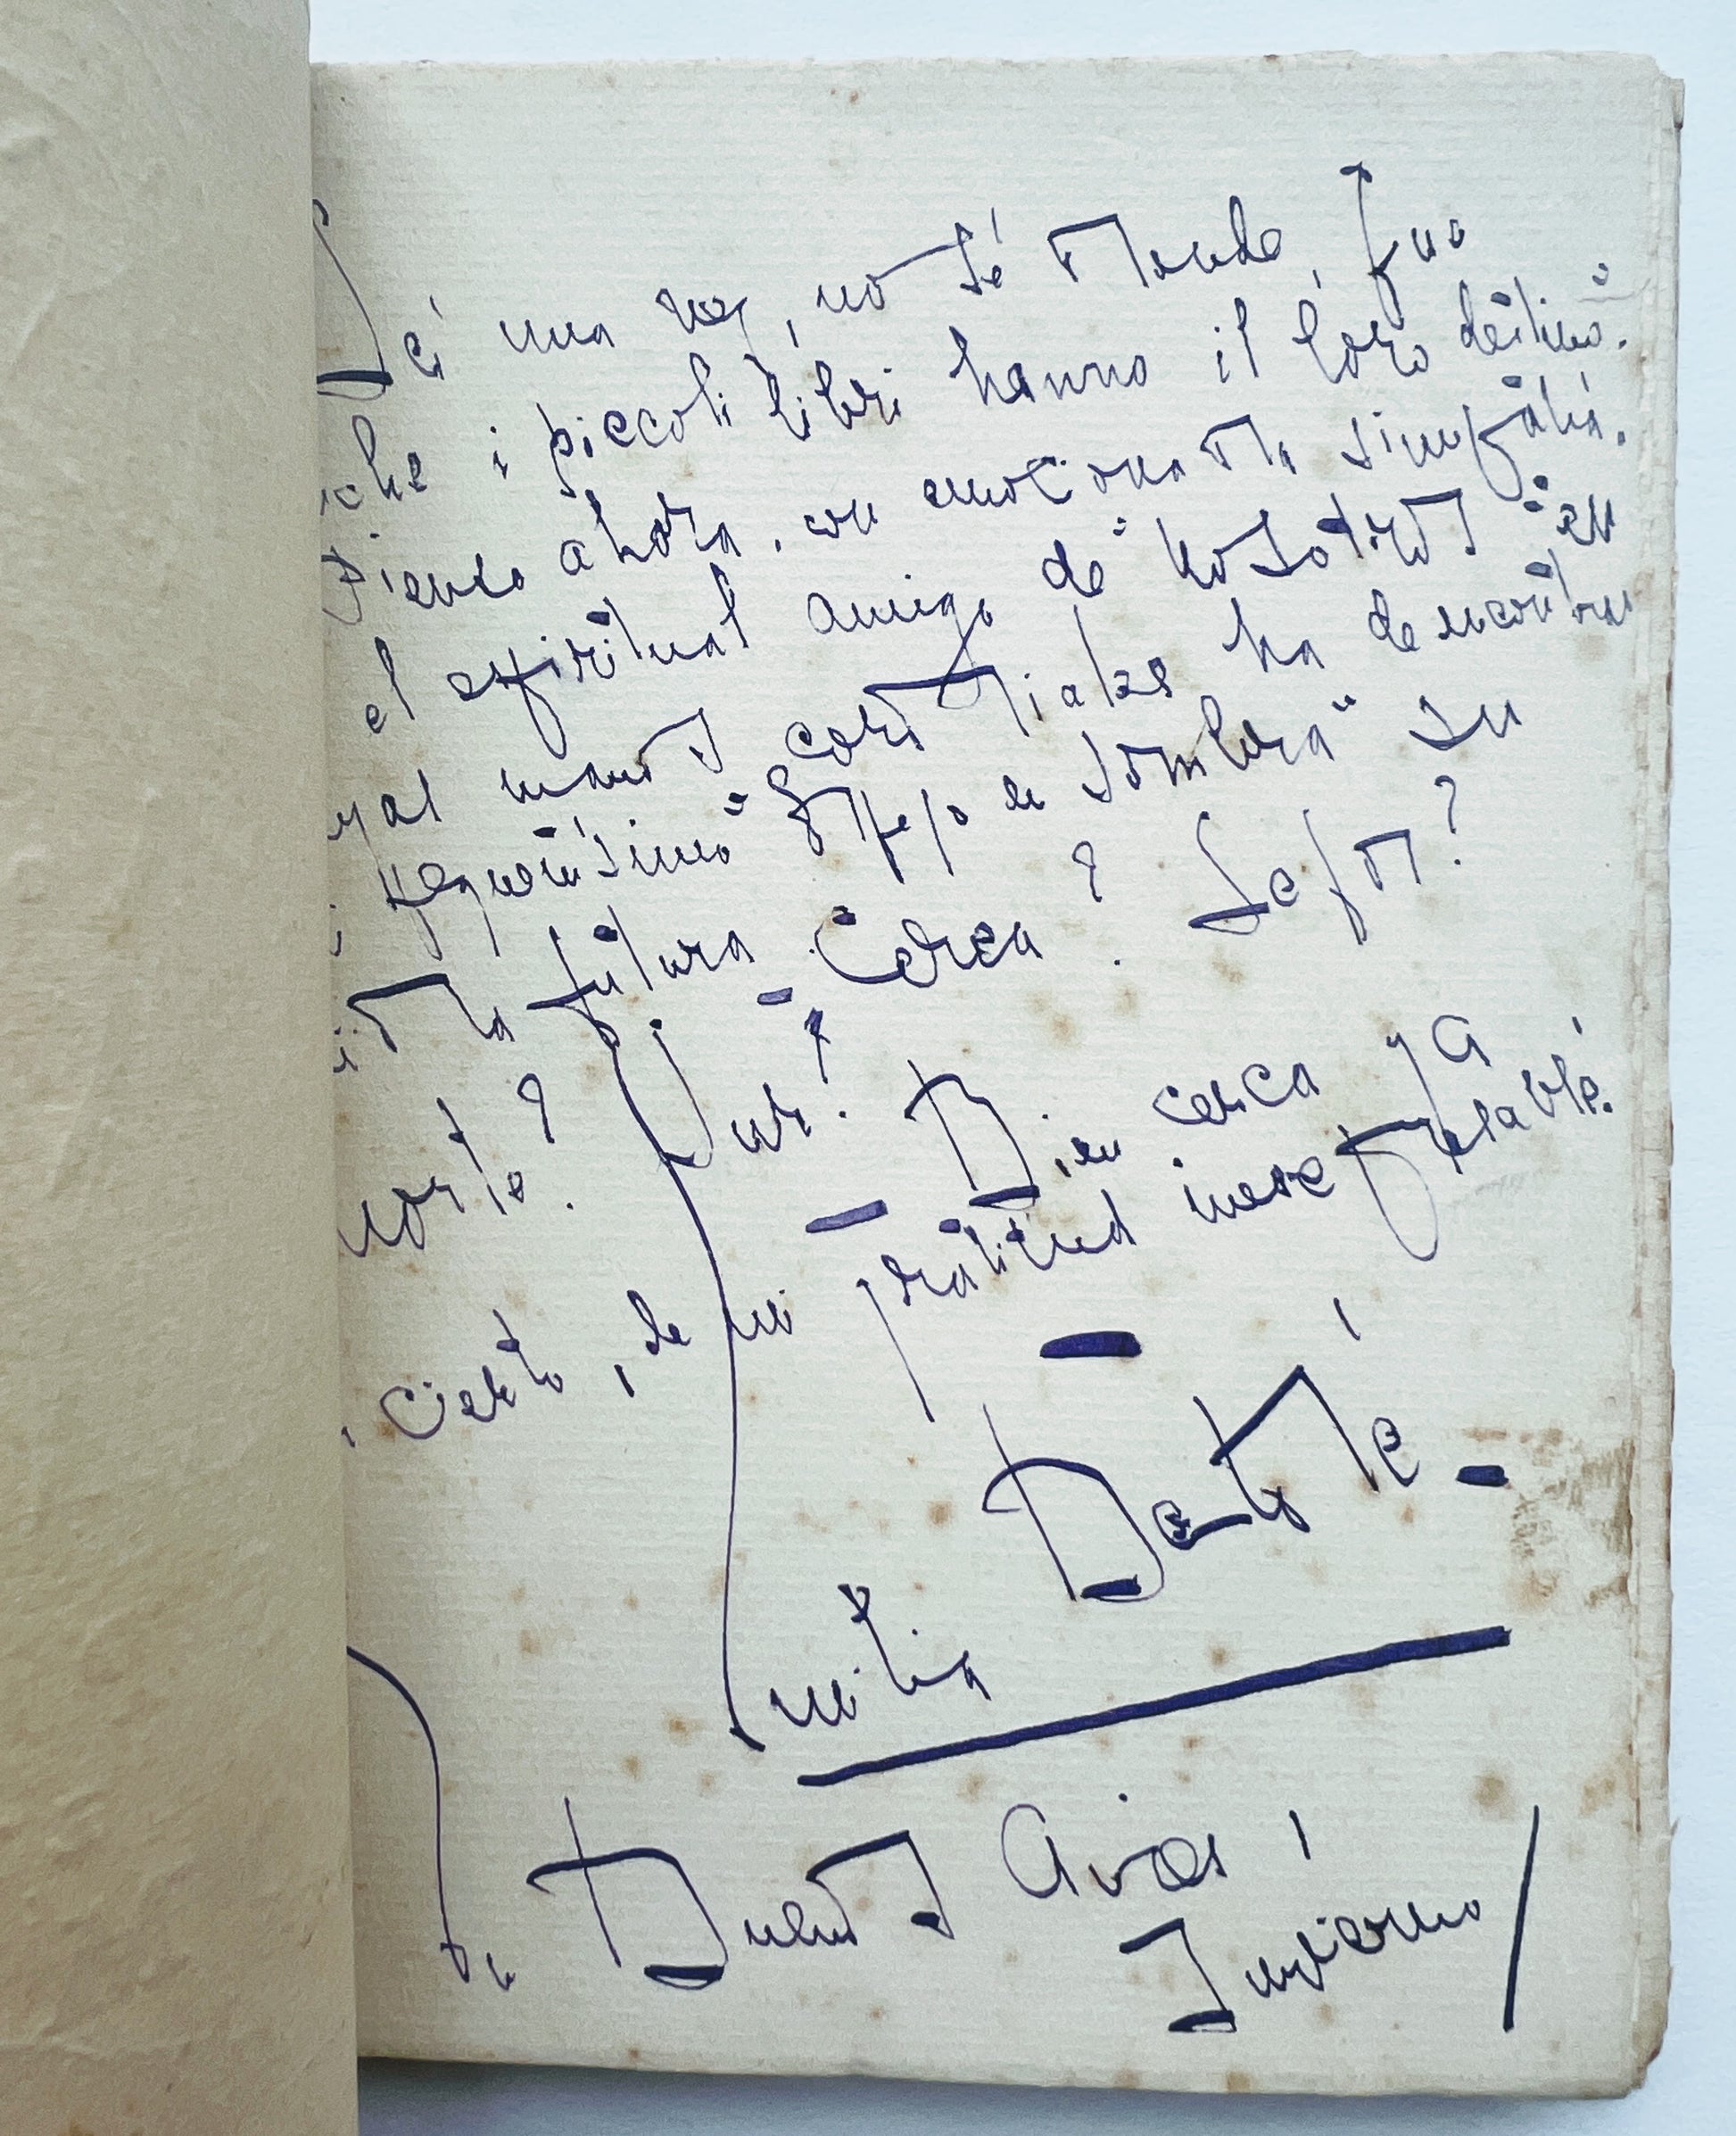 Leí una vez, no sé donde, que
che i piccoli libri hanno il loro destino.
Pienso ahora, con emocionada simpatía.
el espiritual amigo de nosotros en
cordiales ha de encontrar
pequeñísimo "Espejo de Sombra" su
futura. Cerca? Lejos?
norte? Sur? Bien cerca ya
cierto, de mi gratitud inexpresable.
Bertolé
Emilia
Buenos Aires
Invierno/